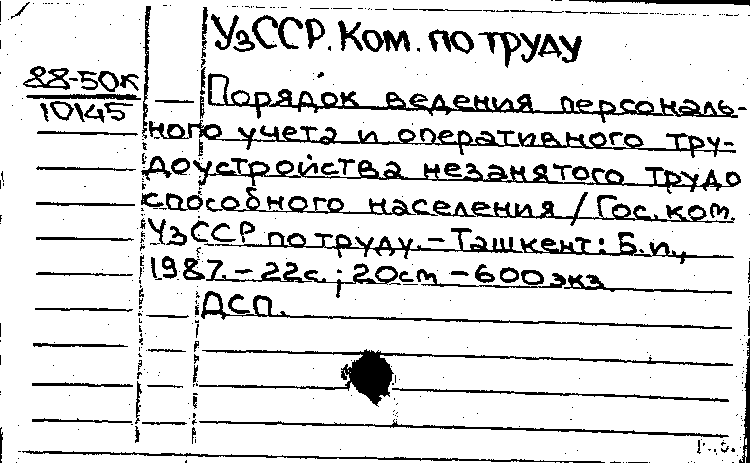 УзССР. Ком. по труду
88-50к
10145
Порядок ведения персональ-
ного учета и оперативного тру-
доустройства незанятого трудо
способного населения / Гос. ком.
УзССР по труду. – Ташкент: Б.и.,
1987. – 22с.; 20см – 600экз
ДСП.